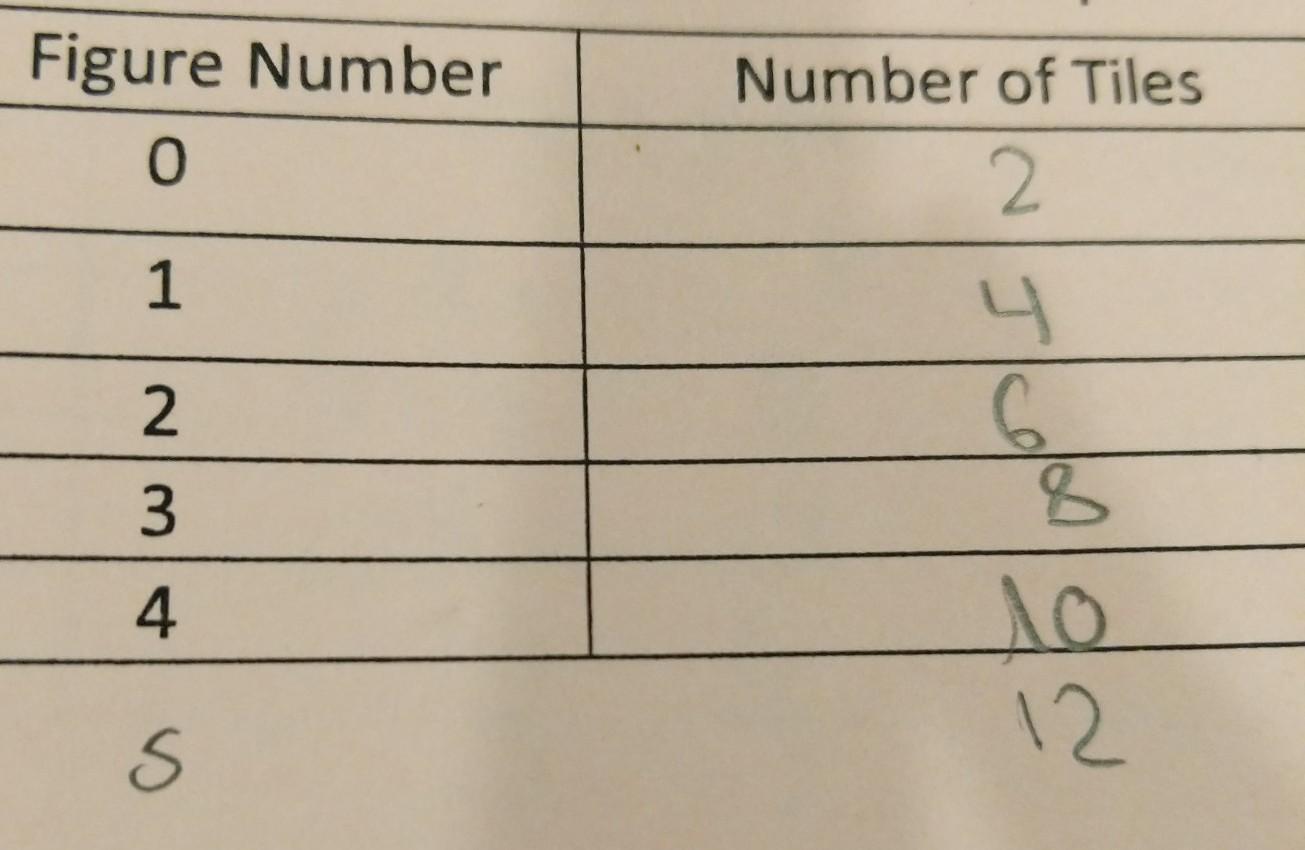 Figure Number Number of Tiles
0 2
1 4
2 6
3 8
4 10
5 12